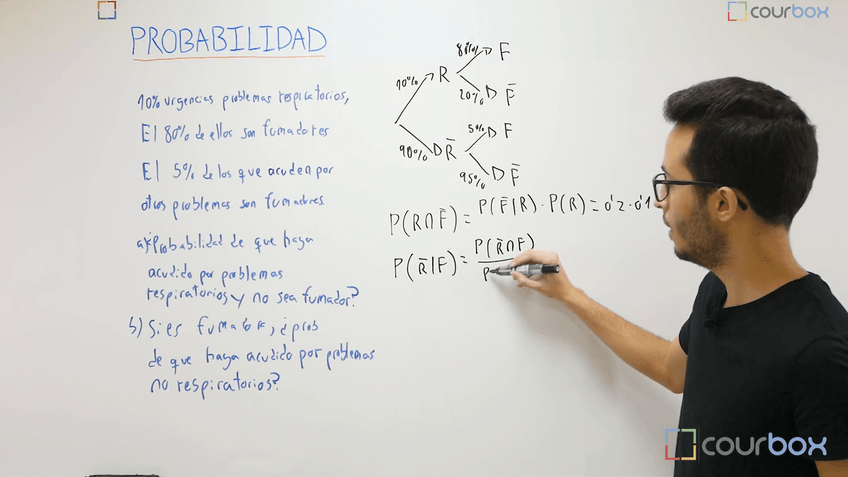 courbox
PROBABILIDAD
10% urgencias problemas respiratorios,
El 80% de ellos son fumadores
El 5% de los que acuden por
otros problemas son fumadores
a) ¿Probabilidad de que haya
acudido por problemas
respiratorios y no sea fumador?
b) Si es fumador, ¿prob
de que haya acudido por problemas
no respiratorios?
80% F
10% R
20% F̄
5% F
90% R̄
95% F̄
P(R∩F̄) = P(F̄|R) · P(R) = 0'2 · 0'1
P(R̄|F) = P(R̄∩F)
P
courbox